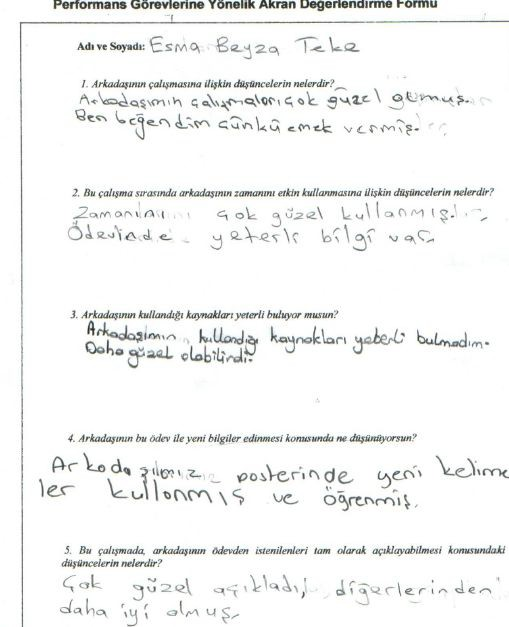 Performans Görevlerine Yönelik Akran Değerlendirme Formu
Adı ve Soyadı: Esma Beyza Teke
1. Arkadaşının çalışmasına ilişkin düşüncelerin nelerdir?
Arkadaşımın çalışmaları çok güzel
Ben beğendim çünkü emek vermiş.
2. Bu çalışma sırasında arkadaşının zamanını etkin kullanmasına ilişkin düşüncelerin nelerdir?
Zamanını çok güzel kullanmış.
Ödevinde yeterli bilgi var.
3. Arkadaşının kullandığı kaynakları yeterli buluyor musun?
Arkadaşımın kullandığı kaynakları yeterli bulmadım.
Daha güzel olabilirdi.
4. Arkadaşının bu ödev ile yeni bilgiler edinmesi konusunda ne düşünüyorsun?
Arkadaşımız posterinde yeni kelime
ler kullanmış ve öğrenmiş.
5. Bu çalışmada, arkadaşının ödevden istenilenleri tam olarak açıklayabilmesi konusundaki
düşüncelerin nelerdir?
Çok güzel açıkladı, diğerlerinden
daha iyi olmuş.